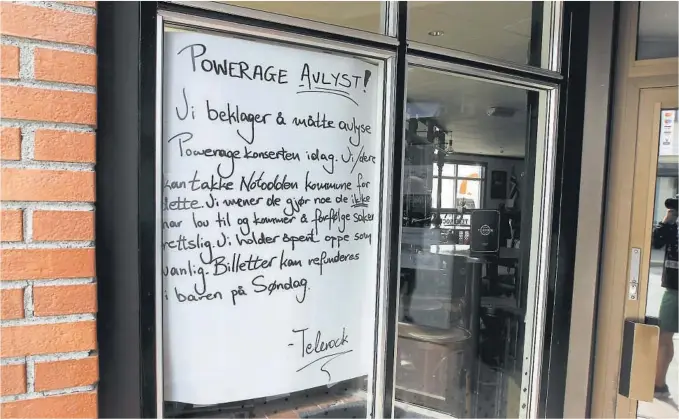 POWERAGE AVLYST!
Vi beklager å måtte avlyse
Powerage konserten idag. Vi/dere
kan takke Notodden kommune for
dette. Vi mener de gjør noe de ikke
har lov til og kommer å forfølge saken
rettslig. Vi holder åpent oppe som
vanlig. Billetter kan refunderes
i baren på Søndag.
- Telerock